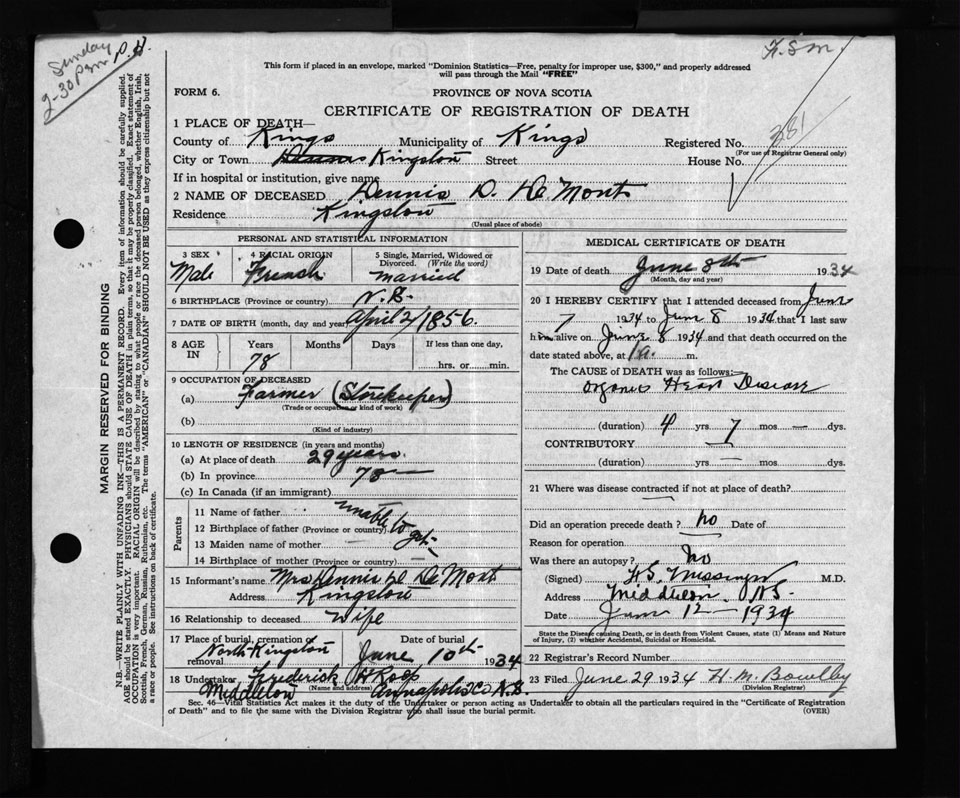 Sunday P.M.
2-30 P.m.
F.S.M.
This form if placed in an envelope, marked "Dominion Statistics—Free, penalty for improper use, $300," and properly addressed
will pass through the Mail "FREE"
FORM 6. PROVINCE OF NOVA SCOTIA
CERTIFICATE OF REGISTRATION OF DEATH
1 PLACE OF DEATH—
County of Kings Municipality of Kings Registered No. 381
(For use of Registrar General only)
City or Town Kingston Street House No.
If in hospital or institution, give name
2 NAME OF DECEASED Dennis D. De Mont
Residence Kingston
(Usual place of abode)
PERSONAL AND STATISTICAL INFORMATION
3 SEX 4 RACIAL ORIGIN 5 Single, Married, Widowed or Divorced. (Write the word)
Male French married
6 BIRTHPLACE (Province or country) N.S.
7 DATE OF BIRTH (month, day and year) April 2/1856.
8 AGE IN Years Months Days If less than one day,
78 hrs. or min.
9 OCCUPATION OF DECEASED
(a) Farmer (Storekeeper)
(Trade or occupation or kind of work)
(b)
(Kind of industry)
10 LENGTH OF RESIDENCE (in years and months)
(a) At place of death 29 years.
(b) In province 78 —
(c) In Canada (if an immigrant)
Parents
11 Name of father unable to get—
12 Birthplace of father (Province or country)
13 Maiden name of mother —
14 Birthplace of mother (Province or country) —
15 Informant's name Mrs Dennis D De Mont
Address Kingston
16 Relationship to deceased Wife
17 Place of burial, cremation or removal North Kingston Date of burial June 10th 1934
18 Undertaker Frederick H Roop
Middleton (Name and address) Annapolis Co N.S.
MEDICAL CERTIFICATE OF DEATH
19 Date of death June 8th 1934
(Month, day and year)
20 I HEREBY CERTIFY that I attended deceased from June
7 1934 to June 8 1934 that I last saw
him alive on June 8 1934 and that death occurred on the
date stated above, at 1 a. m.
The CAUSE OF DEATH was as follows:
Organic Heart Disease
(duration) 4 yrs 7 mos — dys.
CONTRIBUTORY —
(duration) yrs — mos dys.
21 Where was disease contracted if not at place of death?
Did an operation precede death? no Date of
Reason for operation
Was there an autopsy? no
(Signed) M.D.
Address Middleton, NS
Date June 12— 1934
State the Disease causing Death, or in death from Violent Causes, state (1) Means and Nature
of Injury, (2) whether Accidental, Suicidal or Homicidal.
22 Registrar's Record Number
23 Filed June 29 1934 H. M. Bowlby
(Division Registrar)
Sec. 46—Vital Statistics Act makes it the duty of the Undertaker or person acting as Undertaker to obtain all the particulars required in the "Certificate of Registration
of Death" and to file the same with the Division Registrar who shall issue the burial permit. (OVER)
MARGIN RESERVED FOR BINDING
N.B.—WRITE PLAINLY WITH UNFADING INK—THIS IS A PERMANENT RECORD. Every item of information should be carefully supplied.
AGE should be stated EXACTLY. PHYSICIANS should STATE CAUSE OF DEATH in plain terms, so that it may be properly classified. Exact statement of
OCCUPATION is very important. RACIAL ORIGIN will be described by stating to what people or race the deceased person belonged, whether English, Irish,
Scottish, French, German, Russian, Ruthenian, etc. The terms "AMERICAN" or "CANADIAN" SHOULD NOT BE USED as they express citizenship but not
a race or people. See instructions on back of certificate.